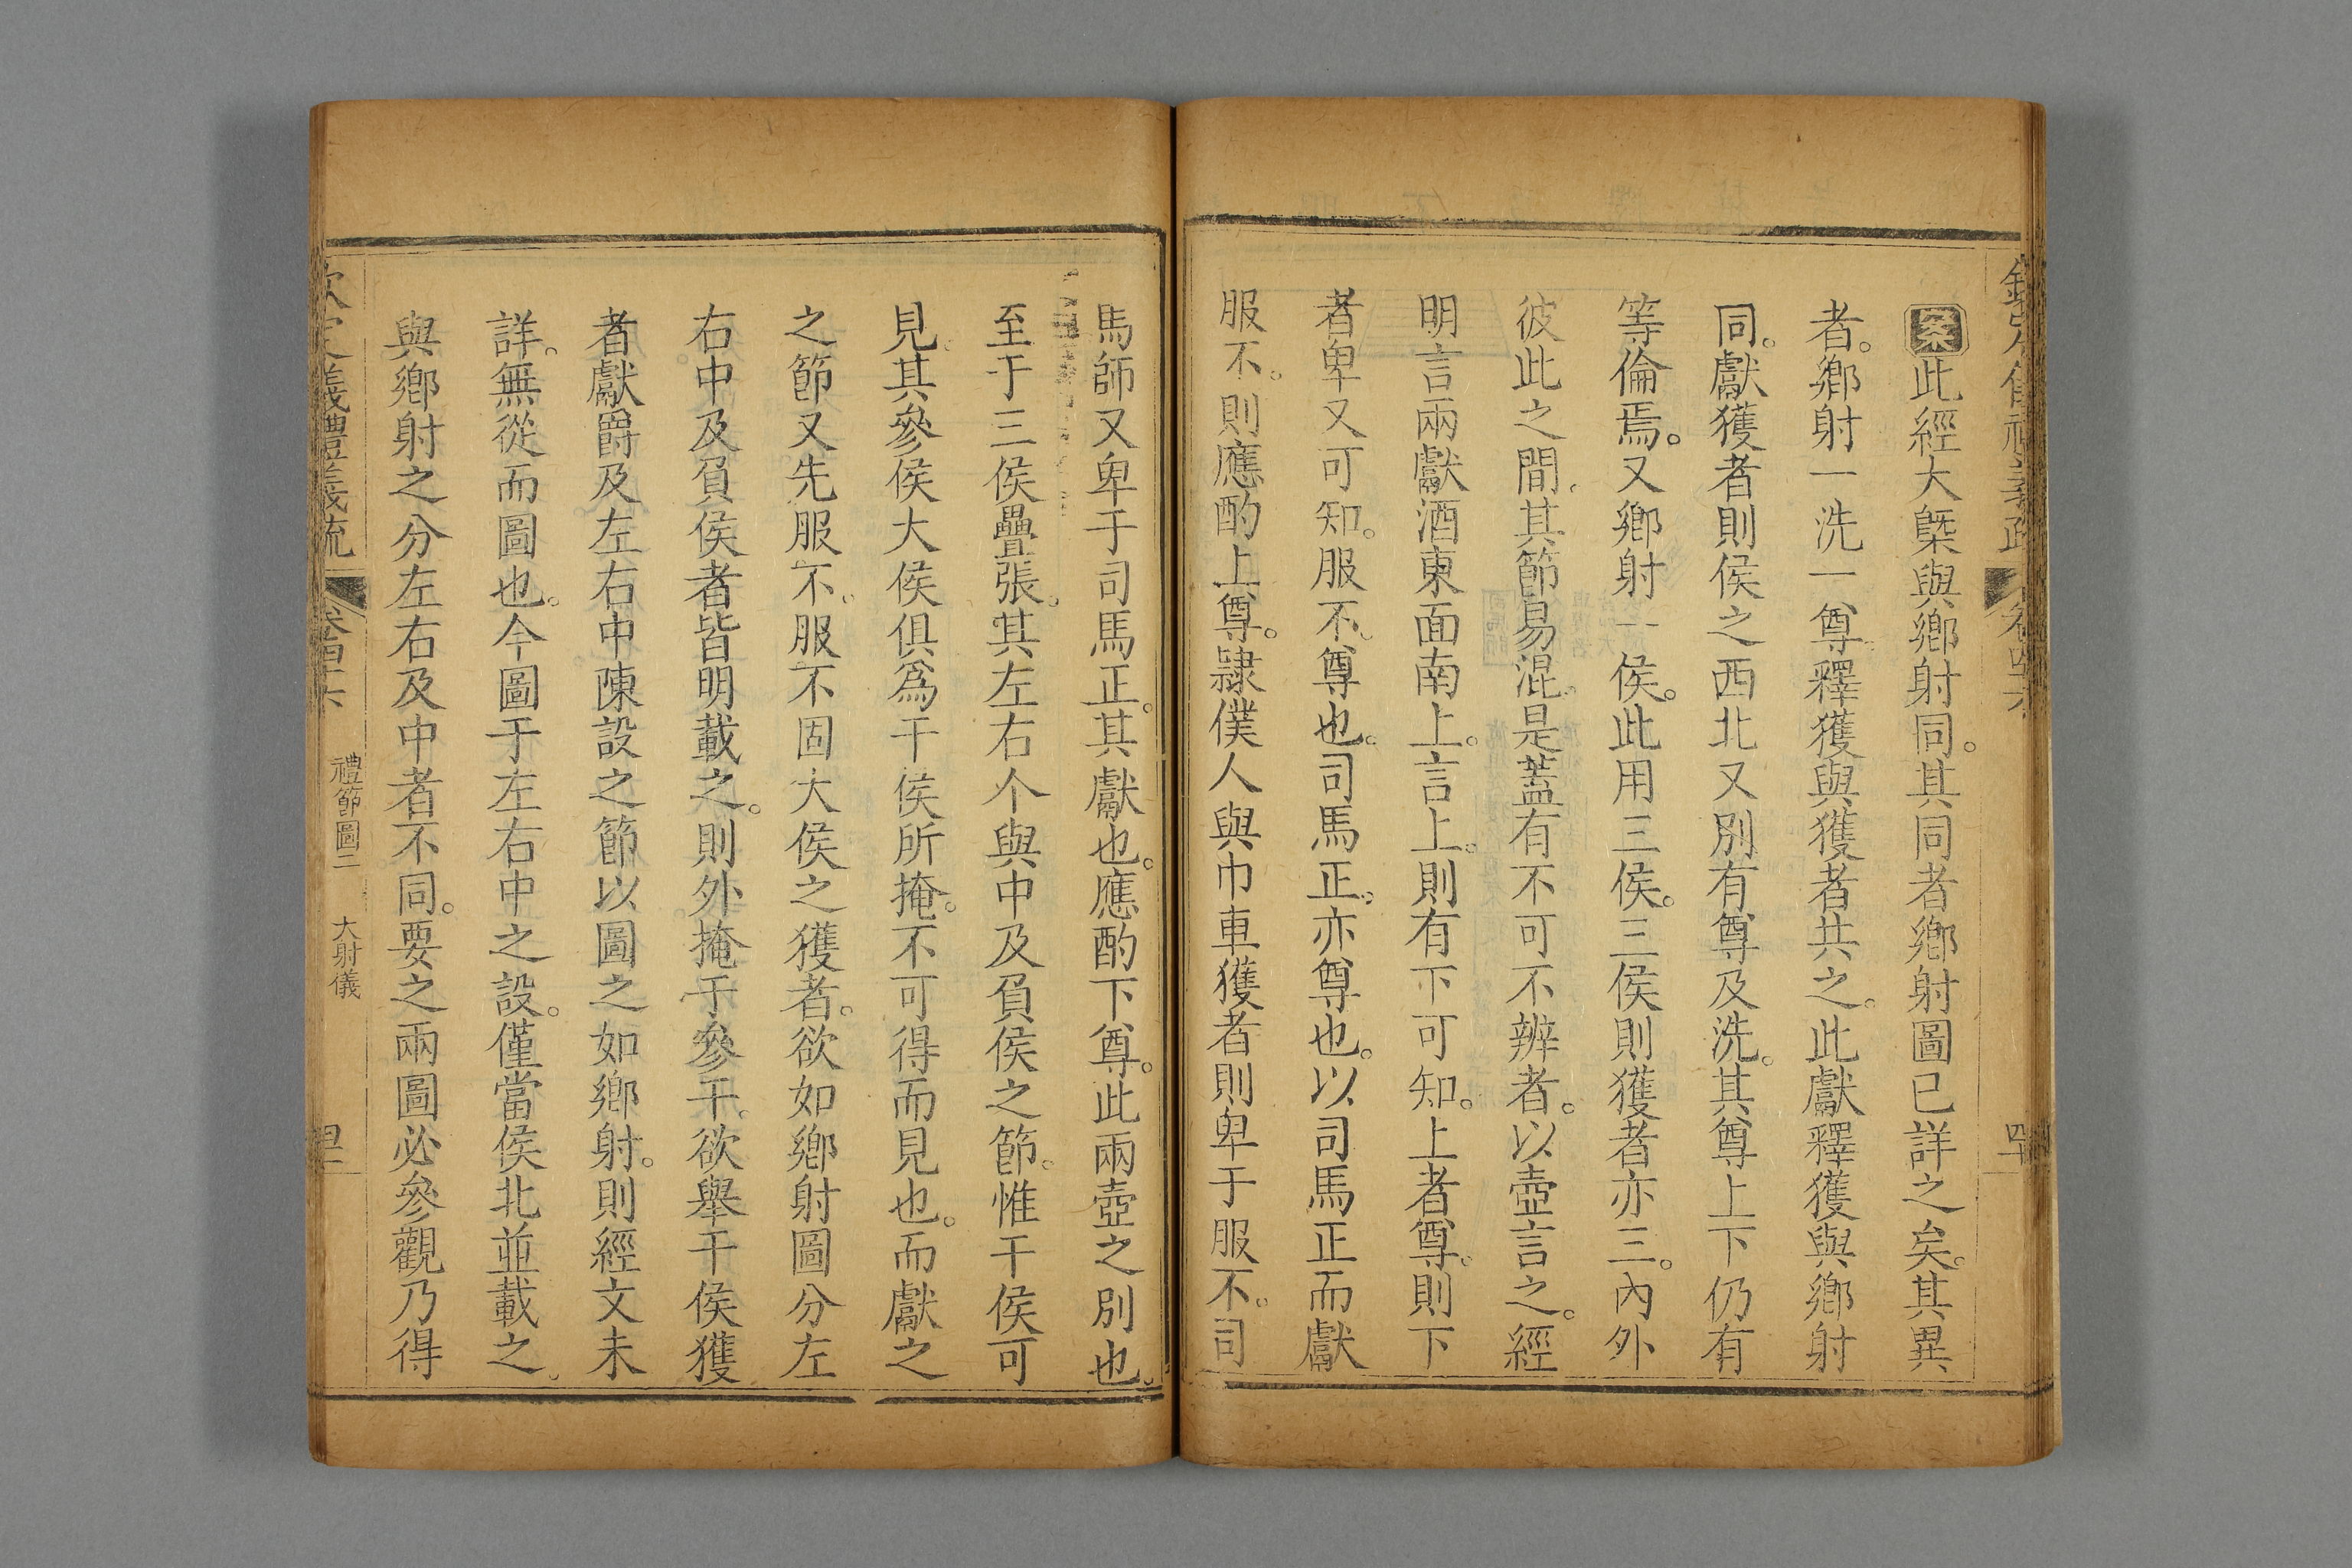 案此經大槩與鄉射同。其同者鄉射圖已詳之矣。其異
者。鄉射一洗一尊釋獲與獲者共之。此獻釋獲與鄉射
同。獻獲者則侯之西北又別有尊及洗。其尊上下仍有
等倫焉。又鄉射一侯。此用三侯。三侯則獲者亦三。內外
彼此之間。其節易混。是蓋有不可不辨者。以壺言之。經
明言兩獻酒東面南上。言上。則有下可知。上者尊。則下
者卑又可知。服不。尊也。司馬正。亦尊也。以司馬正而獻
服不。則應酌上尊。隸僕人與巾車獲者則卑于服不。司
馬師又卑于司馬正。其獻也。應酌下尊。此兩壺之別也。
至于三侯疊張。其左右个與中及負侯之節。惟干侯可
見。其參侯大侯俱爲干侯所掩。不可得而見也。而獻之
之節又先服不。服不固大侯之獲者。欲如鄉射圖分左
右中及負侯者皆明載之。則外掩于參干。欲舉干侯獲
者獻爵及左右中陳設之節以圖之如鄉射。則經文未
詳。無從而圖也。今圖于左右中之設。僅當侯北並載之。
與鄉射之分左右及中者不同。要之兩圖必參觀乃得
欽定義禮義疏 卷四十六 禮節圖二 大射儀